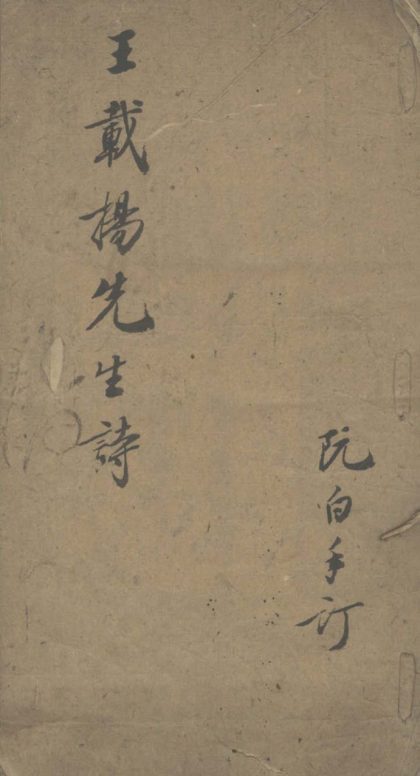 阮白手訂
王載揚先生詩